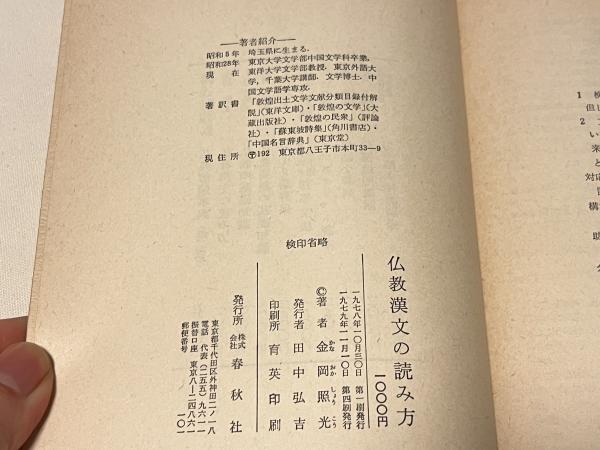 ――著者紹介――
昭和5年 埼玉県に生まる.
昭和28年 東京大学文学部中国文学科卒業.
現 在 東洋大学文学部教授. 東京外語大
学, 千葉大学講師. 文学博士. 中
国文学語学専攻.
著 訳 書 「敦煌出土文学文献分類目録付解
説」(東洋文庫)・「敦煌の文学」(大
蔵出版社)・「敦煌の民衆」(評論
社)・「蘇東坡詩集」(角川書店)・
「中国名言辞典」(東京堂)
現 住 所 〒192 東京都八王子市本町33-9
検印省略
仏教漢文の読み方
一〇〇〇円
一九七八年一〇月三〇日 第一刷発行
一九七九年一一月一〇日 第四刷発行
©著者 金岡照光
かな おか しょう こう
発行者 田中弘吉
印刷所 育英印刷
発行所 株式会社 春秋社
東京都千代田区外神田二ノ一八
電話 代表(二五五)九六一一
振替口座 東京八―二四八六一
郵便番号 一〇一
1
2